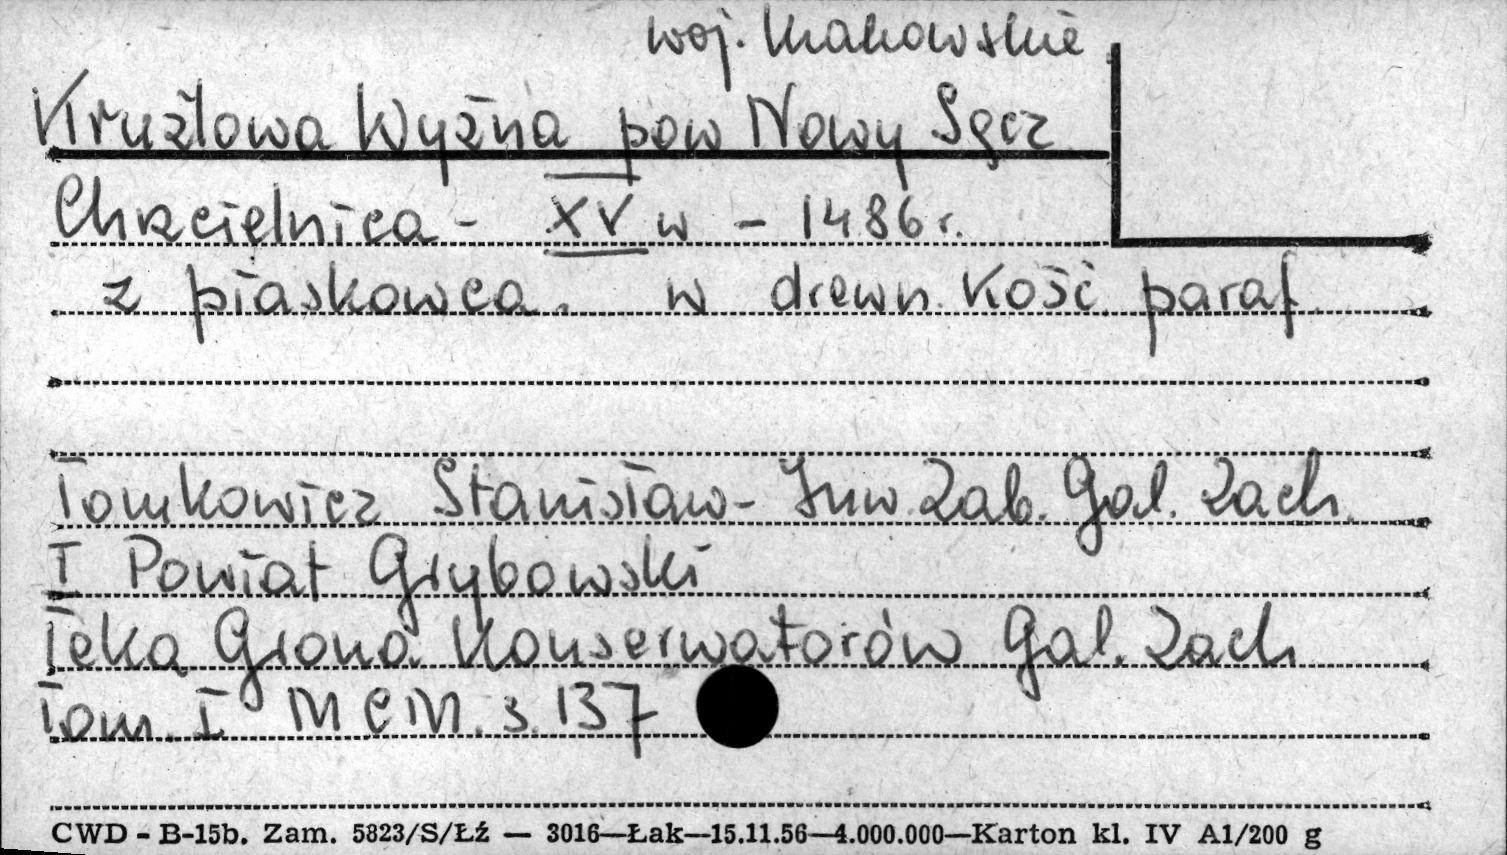 woj. Krakowskie
Krużlowa Wyżna pow Nowy Sącz
Chrzcielnica - XV w - 1486 r.
z piaskowca. w drewn. Kość. paraf.
Tomkowicz Stanisław - Inw. Zab. Gal. Zach.
I Powiat Grybowski
Teka Grona Konserwatorów Gal. Zach
Tom. I MCM. s. 137
CWD - B-15b. Zam. 5823/S/Łź — 3016—Łak—15.11.56—4.000.000—Karton kl. IV A1/200 g